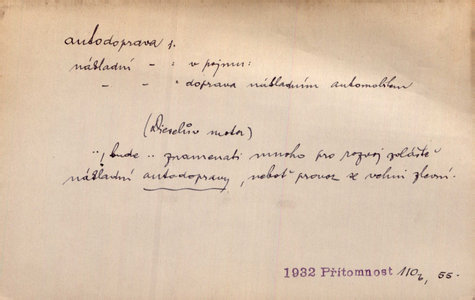 autodoprava f.
nákladní - : v pojmu:
- - " doprava nákladním automobilem
(Dieselův motor)
"/ bude .. znamenati mnoho pro rozvoj zvláště
nákladní autodopravy, neboť provoz se velmi zlevní.
1932 Přítomnost 110/2, 55.